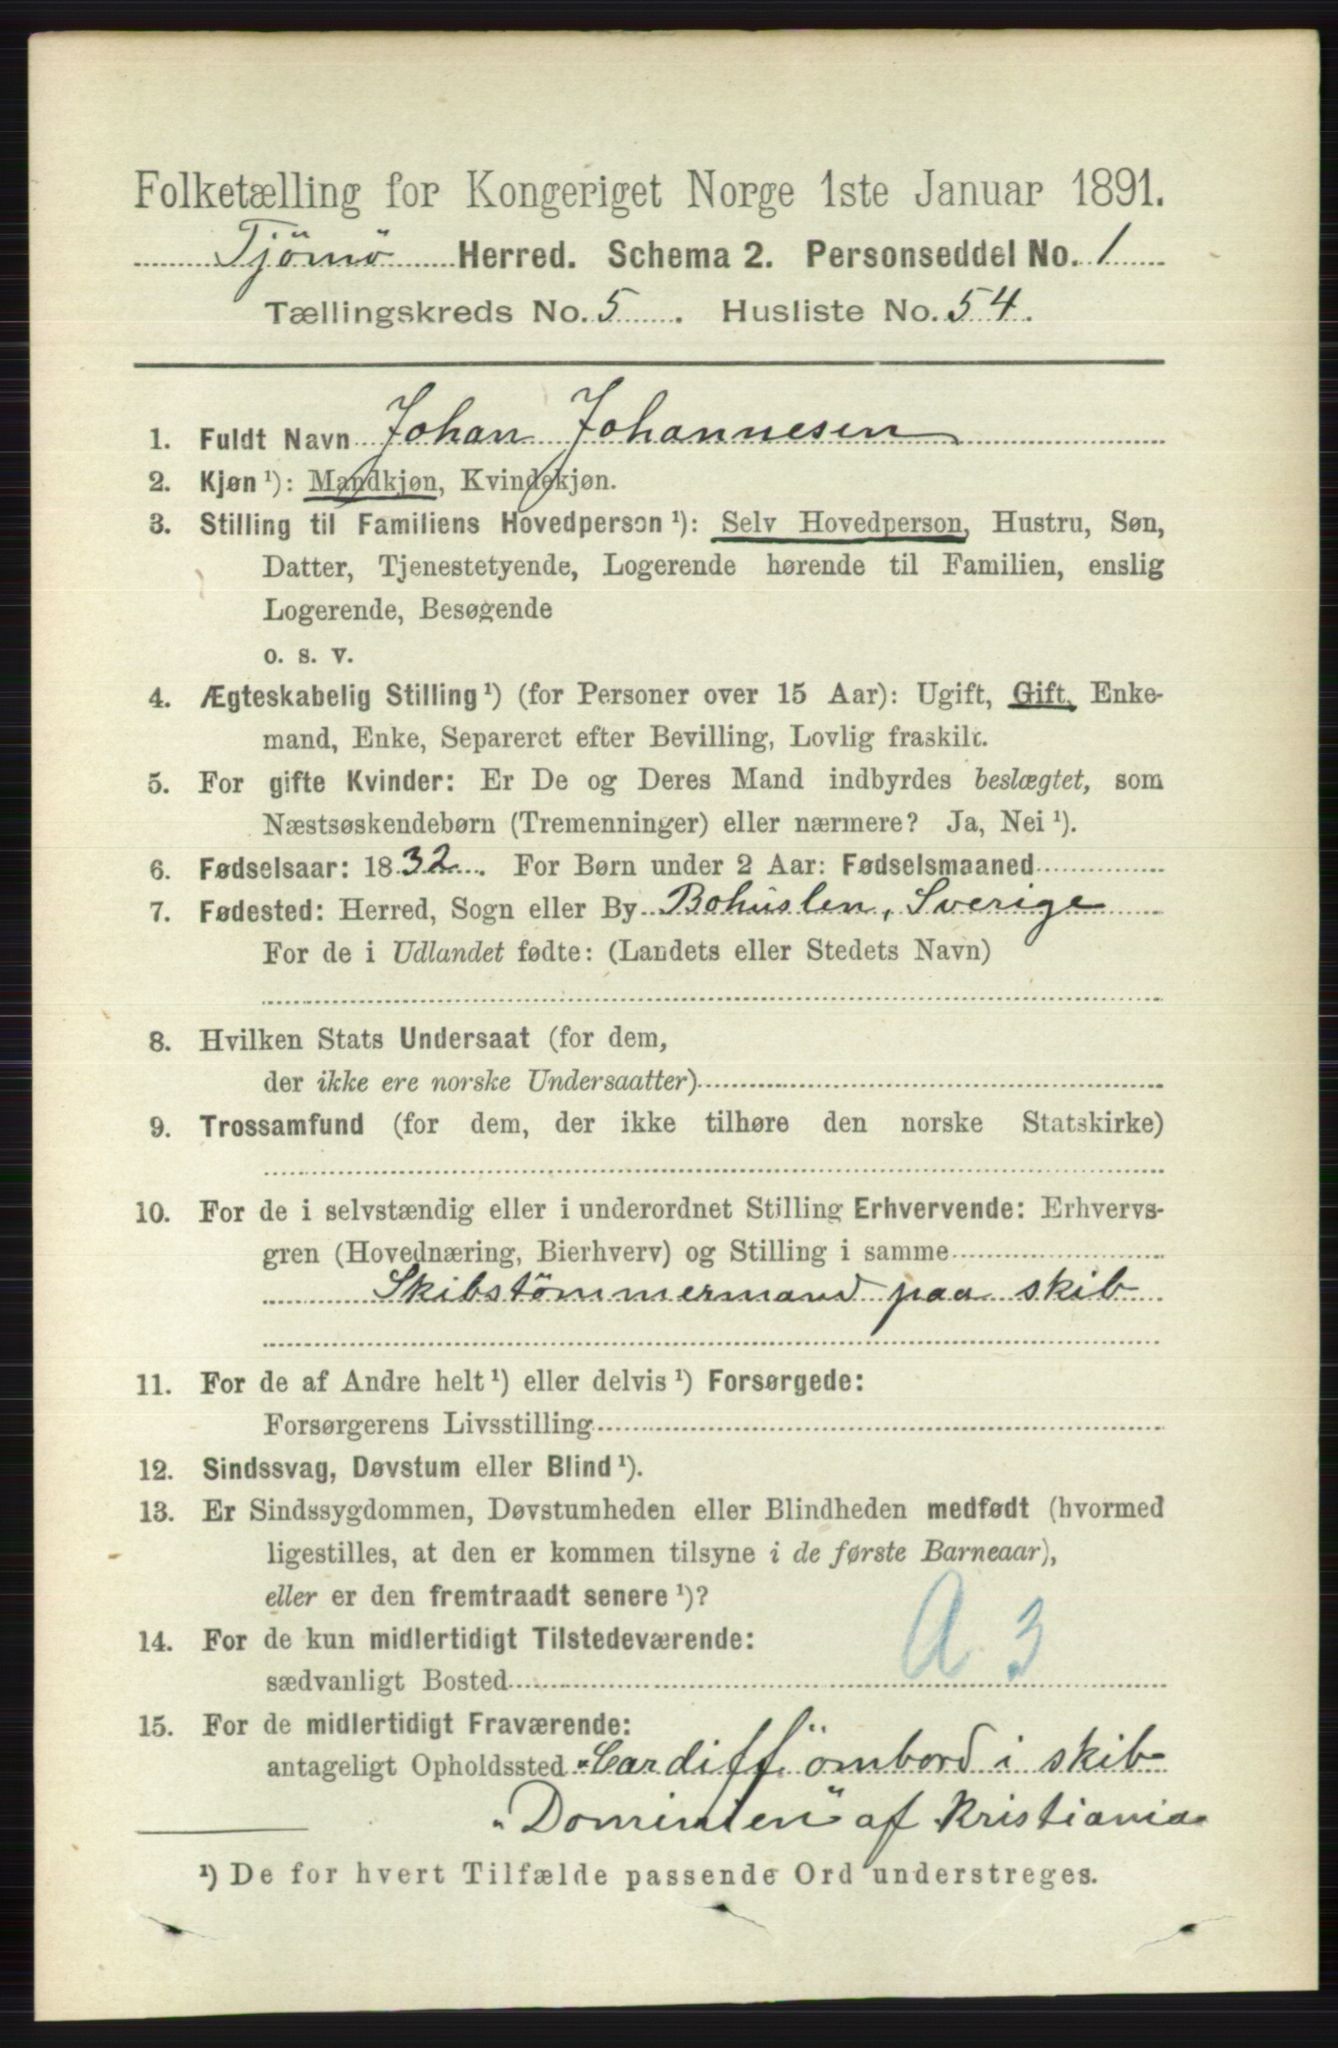 Folketælling for Kongeriget Norge 1ste Januar 1891.
Tjömö Herred. Schema 2. Personseddel No. 1
Tællingskreds No. 5. Husliste No. 54.
1. Fuldt Navn Johan Johannesen
2. Kjøn ¹): Mandkjøn, Kvindekjøn.
3. Stilling til Familiens Hovedperson ¹): Selv Hovedperson, Hustru, Søn,
Datter, Tjenestetyende, Logerende hørende til Familien, enslig
Logerende, Besøgende
o. s. v.
4. Ægteskabelig Stilling ¹) (for Personer over 15 Aar): Ugift, Gift, Enke-
mand, Enke, Separeret efter Bevilling, Lovlig fraskilt.
5. For gifte Kvinder: Er De og Deres Mand indbyrdes beslægtet, som
Næstsøskendebørn (Tremenninger) eller nærmere? Ja, Nei ¹).
6. Fødselsaar: 1832. For Børn under 2 Aar: Fødselsmaaned
7. Fødested: Herred, Sogn eller By Bohuslen, Sverige
For de i Udlandet fødte: (Landets eller Stedets Navn)
8. Hvilken Stats Undersaat (for dem,
der ikke ere norske Undersaatter)
9. Trossamfund (for dem, der ikke tilhøre den norske Statskirke)
10. For de i selvstændig eller i underordnet Stilling Erhvervende: Erhvervs-
gren (Hovednæring, Bierhverv) og Stilling i samme
Skibstömmermand paa skib
11. For de af Andre helt ¹) eller delvis ¹) Forsørgede:
Forsørgerens Livsstilling
12. Sindssvag, Døvstum eller Blind ¹).
13. Er Sindssygdommen, Døvstumheden eller Blindheden medfødt (hvormed
ligestilles, at den er kommen tilsyne i de første Barneaar),
eller er den fremtraadt senere ¹)?
A 3
14. For de kun midlertidigt Tilstedeværende:
sædvanligt Bosted
15. For de midlertidigt Fraværende:
antageligt Opholdssted "Cardiff" ombord i skib
"Dominien" af Kristiania
¹) De for hvert Tilfælde passende Ord understreges.